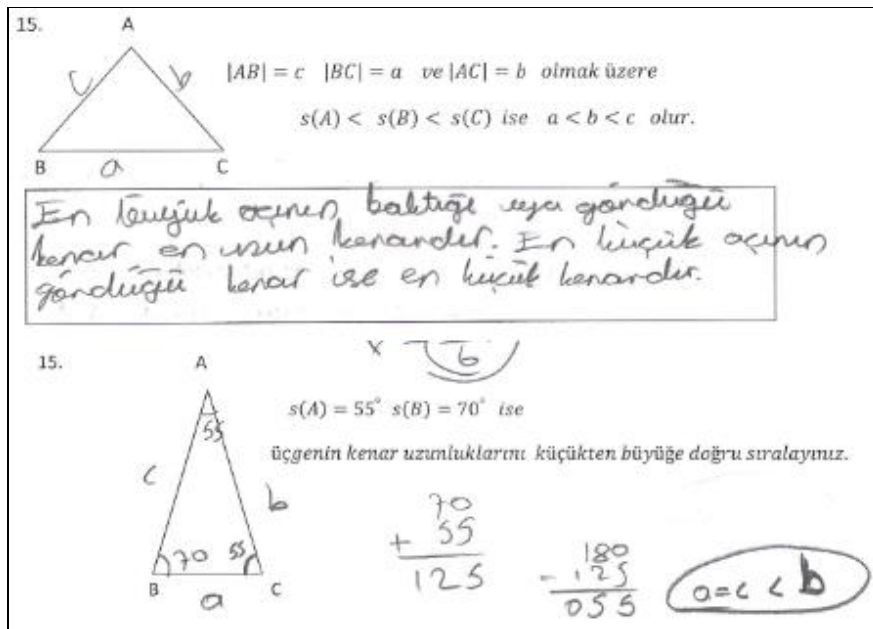 15.
A
c b
|AB| = c |BC| = a ve |AC| = b olmak üzere
s(A) < s(B) < s(C) ise a < b < c olur.
B a C
En büyük açının baktığı veya gördüğü
kenar en uzun kenardır. En küçük açının
gördüğü kenar ise en küçük kenardır.
x 6
15.
A
s(A) = 55° s(B) = 70° ise
55
üçgenin kenar uzunluklarını küçükten büyüğe doğru sıralayınız.
c b
70
+ 55
125
180
- 125
055
a=c < b
70 55
B a C